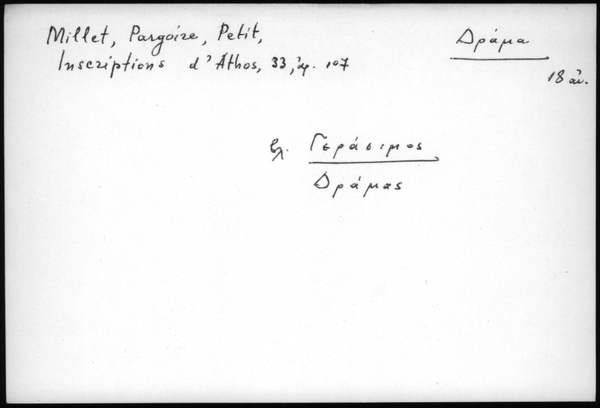 Millet, Pargoire, Petit,
Inscriptions d'Athos, 33, ἀρ. 107
Δράμα
18 αἰ.
βλ. Γεράσιμος
Δράμας